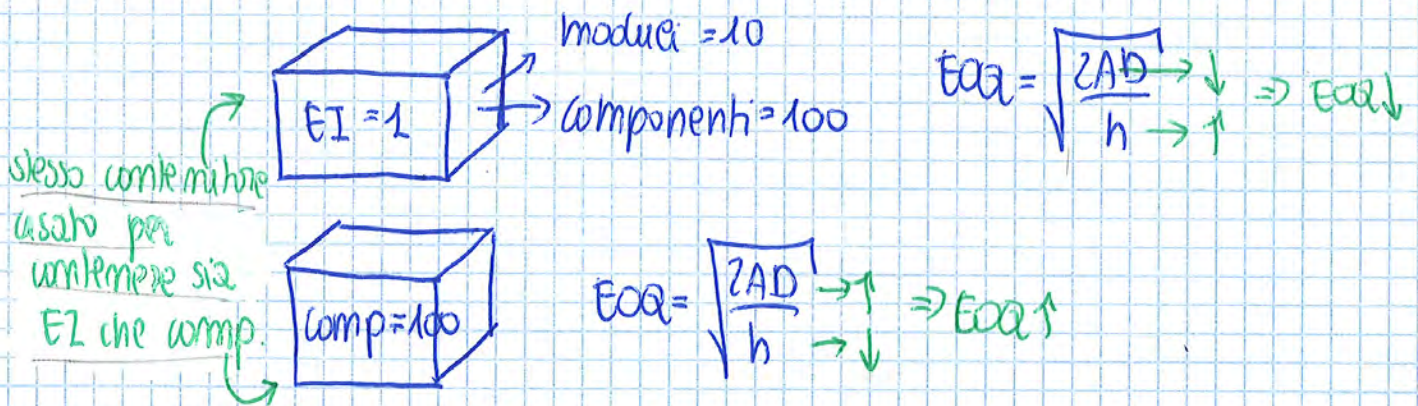 moduli = 10
EI = 1
componenti = 100
EOQ = √(2AD/h) → ↓ → ↑ ⇒ EOQ↓
stesso contenitore
usato per
contenere sia
EI che comp.
comp = 100
EOQ = √(2AD/h) → ↑ → ↓ ⇒ EOQ↑